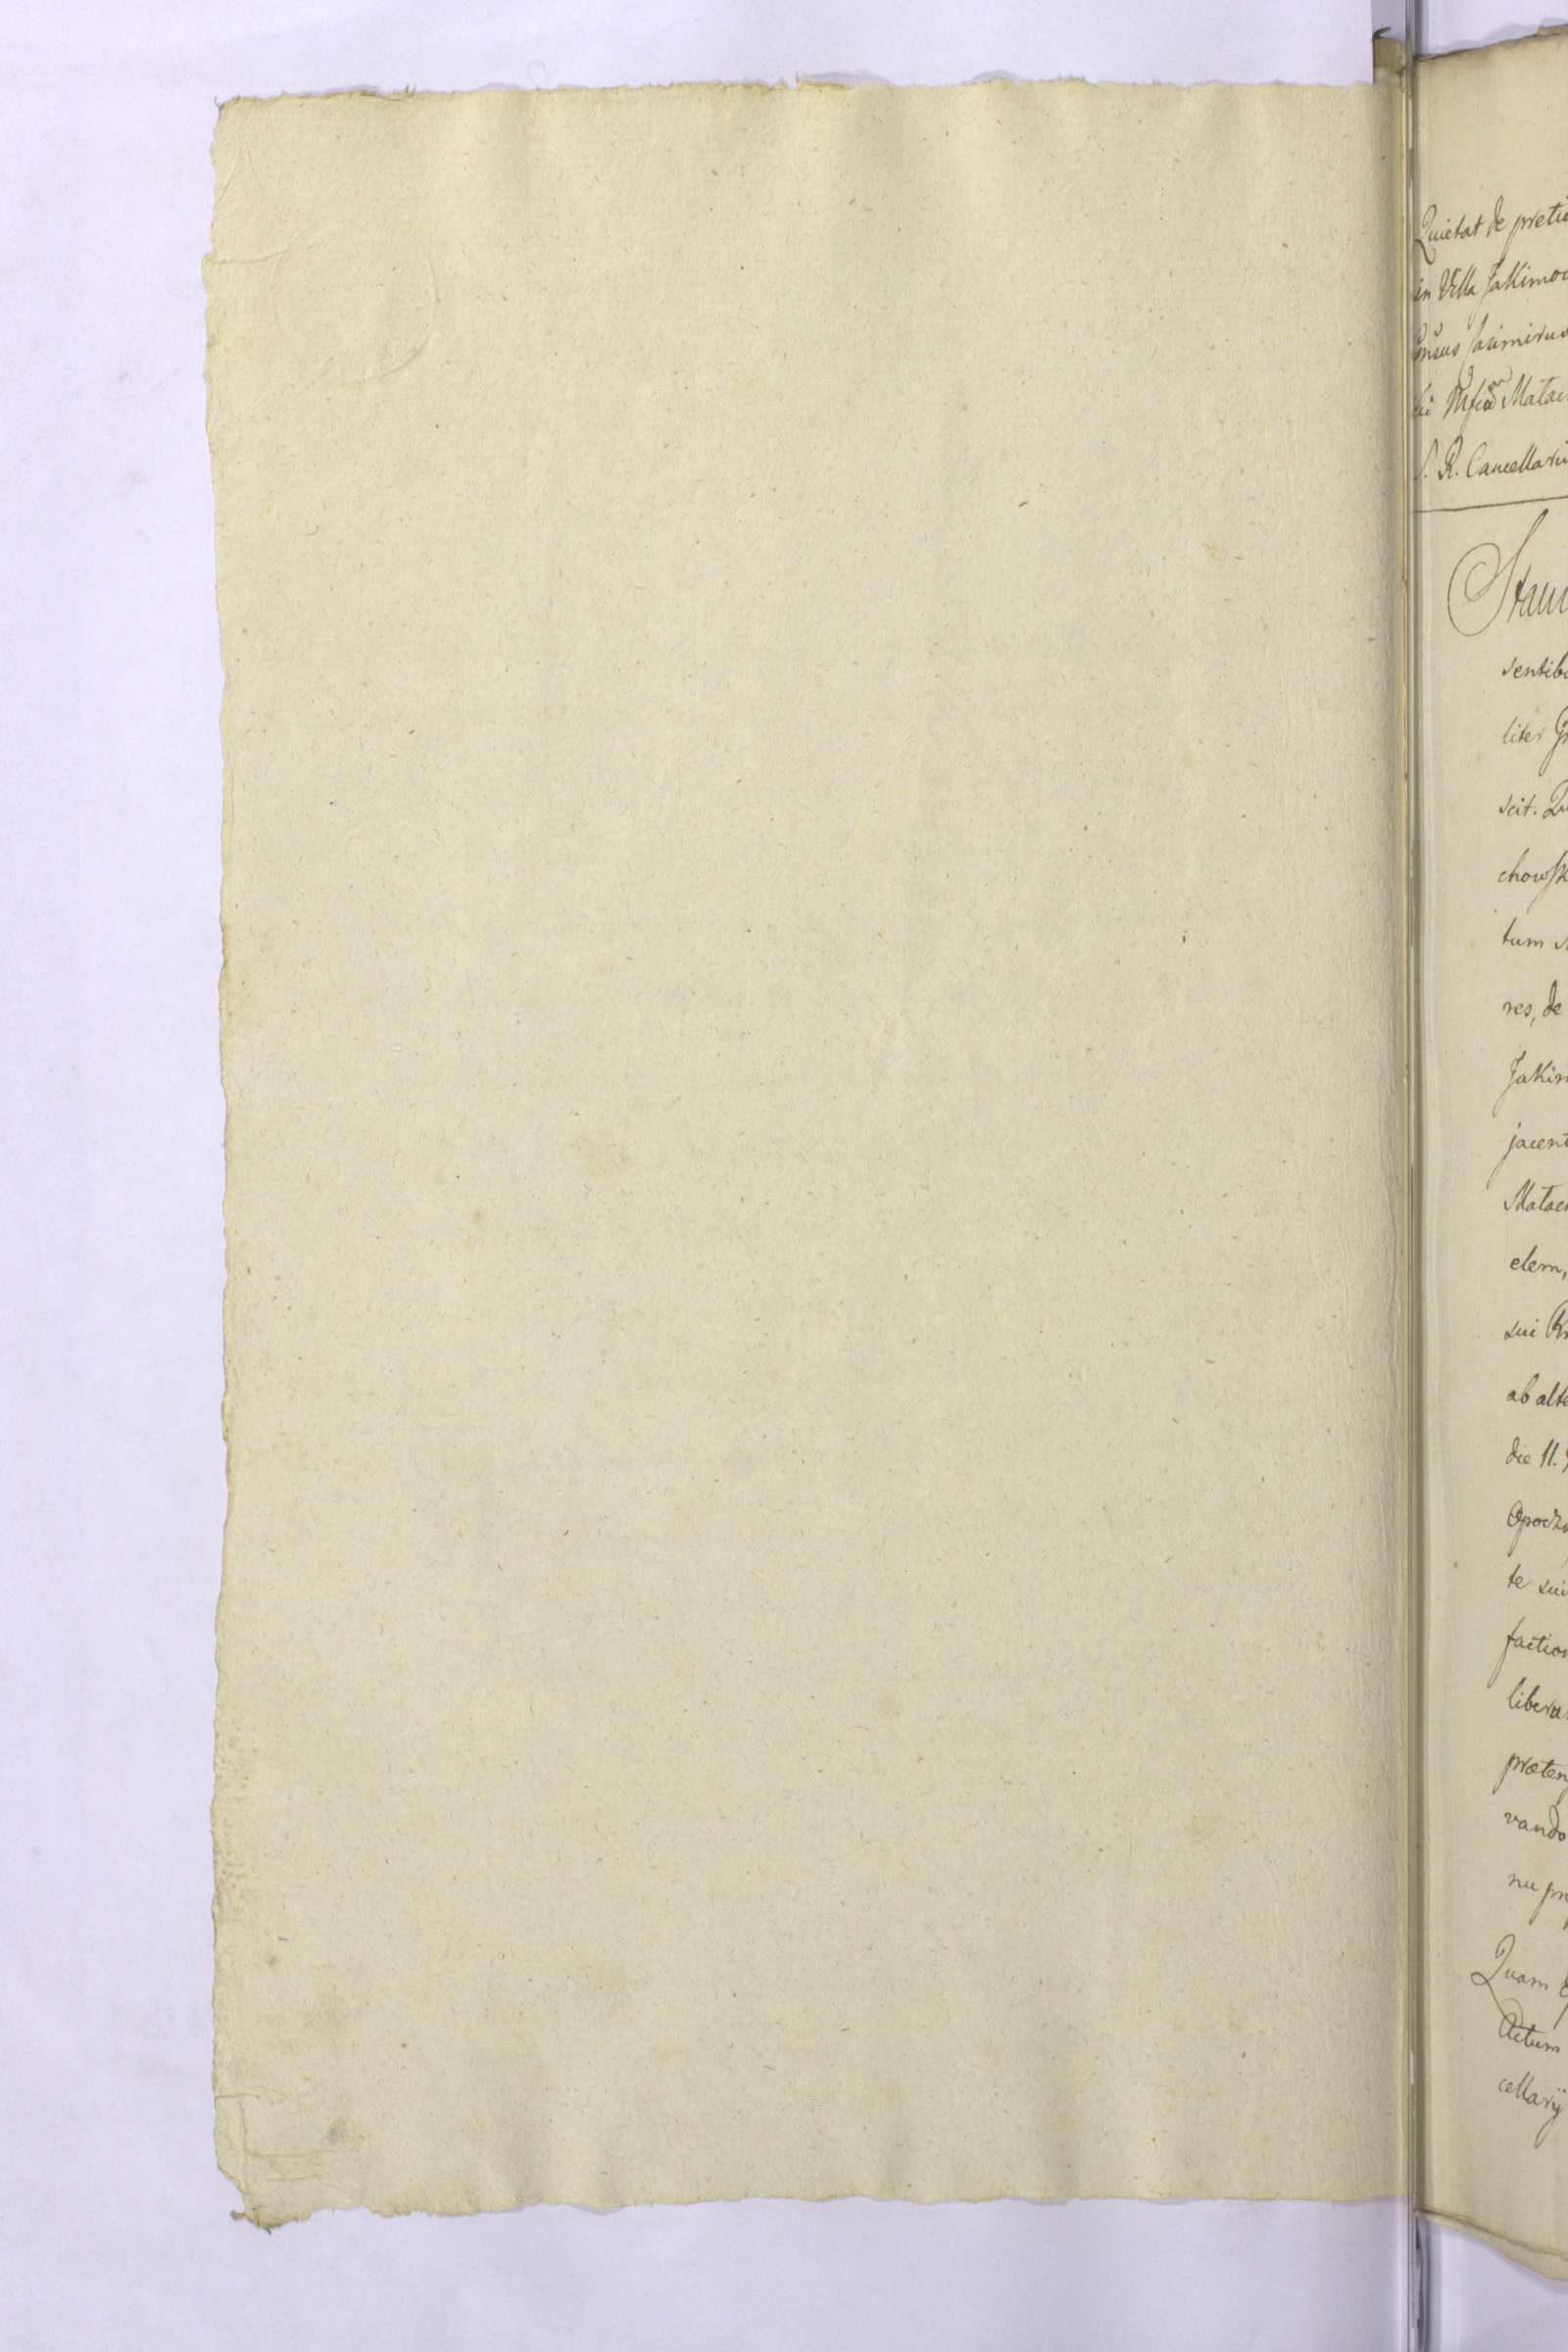 Quietat de pretio
in Villa Jakimow
Casimirus
Matac
S. R. Cancellari
Stani
sentibu
liter
scit. Qu
chowsk
tum
res, de
Jakim
jacent
Matac
elem,
sui
ab alte
die 11.
Opoczn
te sui
faction
libera
præten
vando
nu pro
Quam
Actum
cellarij